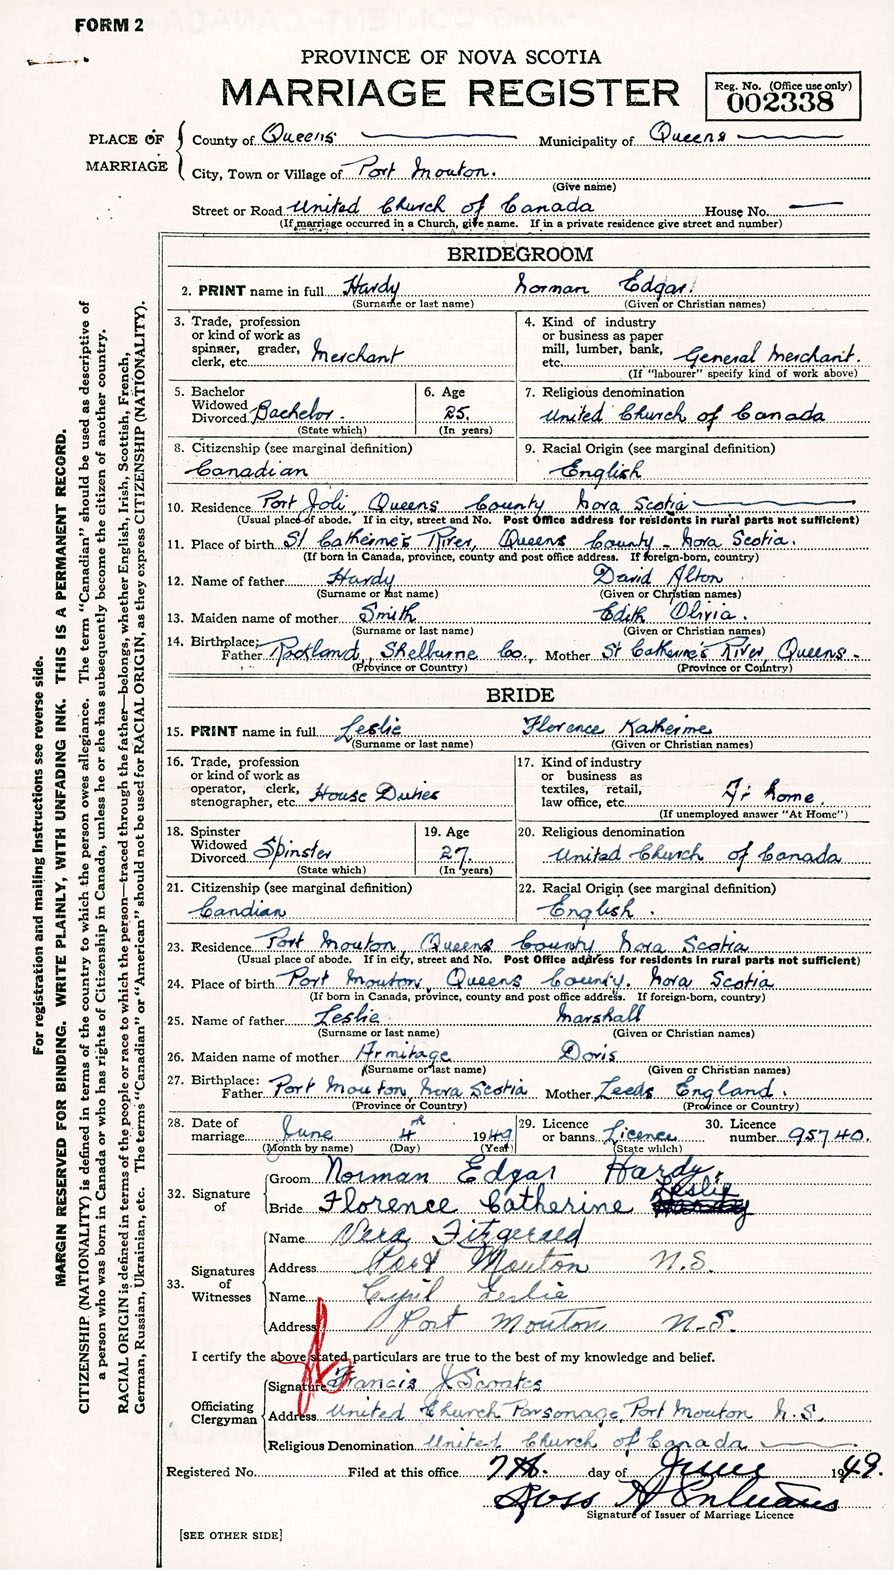 FORM 2
PROVINCE OF NOVA SCOTIA
MARRIAGE REGISTER
Reg. No. (Office use only)
002338
PLACE OF MARRIAGE
County of Queens Municipality of Queens
City, Town or Village of Port Mouton.
(Give name)
Street or Road United Church of Canada House No. —
(If marriage occurred in a Church, give name. If in a private residence give street and number)
BRIDEGROOM
2. PRINT name in full Hardy Norman Edgar.
(Surname or last name) (Given or Christian names)
3. Trade, profession or kind of work as spinner, grader, clerk, etc. Merchant
4. Kind of industry or business as paper mill, lumber, bank, etc. General Merchant.
(If "labourer" specify kind of work above)
5. Bachelor Widowed Divorced Bachelor.
(State which)
6. Age 25.
(In years)
7. Religious denomination
United Church of Canada
8. Citizenship (see marginal definition)
Canadian
9. Racial Origin (see marginal definition)
English
10. Residence Port Joli, Queens County Nova Scotia
(Usual place of abode. If in city, street and No. Post Office address for residents in rural parts not sufficient)
11. Place of birth St Catherine's River, Queens County - Nova Scotia.
(If born in Canada, province, county and post office address. If foreign-born, country)
12. Name of father Hardy David Alton
(Surname or last name) (Given or Christian names)
13. Maiden name of mother Smith Edith Olivia.
(Surname or last name) (Given or Christian names)
14. Birthplace:
Father Rockland, Shelburne Co., Mother St Catherine's River, Queens -
(Province or Country) (Province or Country)
BRIDE
15. PRINT name in full Leslie Florence Katherine
(Surname or last name) (Given or Christian names)
16. Trade, profession or kind of work as operator, clerk, stenographer, etc. House Duties
17. Kind of industry or business as textiles, retail, law office, etc. At home.
(If unemployed answer "At Home")
18. Spinster Widowed Divorced Spinster
(State which)
19. Age 27.
(In years)
20. Religious denomination
United Church of Canada
21. Citizenship (see marginal definition)
Candian
22. Racial Origin (see marginal definition)
English.
23. Residence Port Mouton, Queens County Nova Scotia
(Usual place of abode. If in city, street and No. Post Office address for residents in rural parts not sufficient)
24. Place of birth Port Mouton, Queens County. Nova Scotia
(If born in Canada, province, county and post office address. If foreign-born, country)
25. Name of father Leslie Marshall
(Surname or last name) (Given or Christian names)
26. Maiden name of mother Armitage Doris
(Surname or last name) (Given or Christian names)
27. Birthplace:
Father Port Mouton, Nova Scotia Mother Leeds England.
(Province or Country) (Province or Country)
28. Date of marriage June 4th 1949
(Month by name) (Day) (Year)
29. Licence or banns Licence
(State which)
30. Licence number 95740.
32. Signature of
Groom Norman Edgar Hardy.
Bride Florence Catherine Leslie
33. Signatures of Witnesses
Name Vera Fitzgerald
Address Port Mouton N.S.
Name Cyril Leslie
Address Port Mouton N.S.
I certify the above stated particulars are true to the best of my knowledge and belief.
Officiating Clergyman
Signature Francis J Scoates
Address United Church Parsonage, Port Mouton N.S.
Religious Denomination United Church of Canada
Registered No. Filed at this office 7th. day of June 1949.
Ross H
Signature of Issuer of Marriage Licence
[SEE OTHER SIDE]
For registration and mailing instructions see reverse side.
MARGIN RESERVED FOR BINDING. WRITE PLAINLY, WITH UNFADING INK. THIS IS A PERMANENT RECORD.
CITIZENSHIP (NATIONALITY) is defined in terms of the country to which the person owes allegiance. The term "Canadian" should be used as descriptive of
a person who was born in Canada or who has rights of Citizenship in Canada, unless he or she has subsequently become the citizen of another country.
RACIAL ORIGIN is defined in terms of the people or race to which the person—traced through the father—belongs, whether English, Irish, Scottish, French,
German, Russian, Ukrainian, etc. The terms "Canadian" or "American" should not be used for RACIAL ORIGIN, as they express CITIZENSHIP (NATIONALITY).